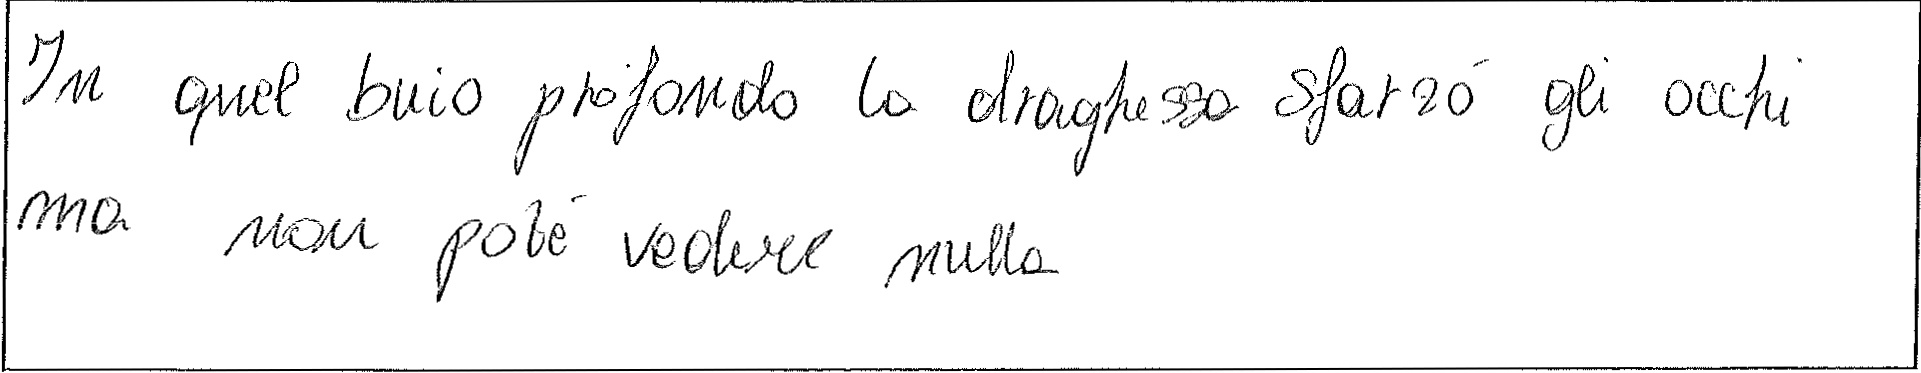 In quel buio profondo la draghessa sfarzó gli occhi
ma non poté vedere nulla